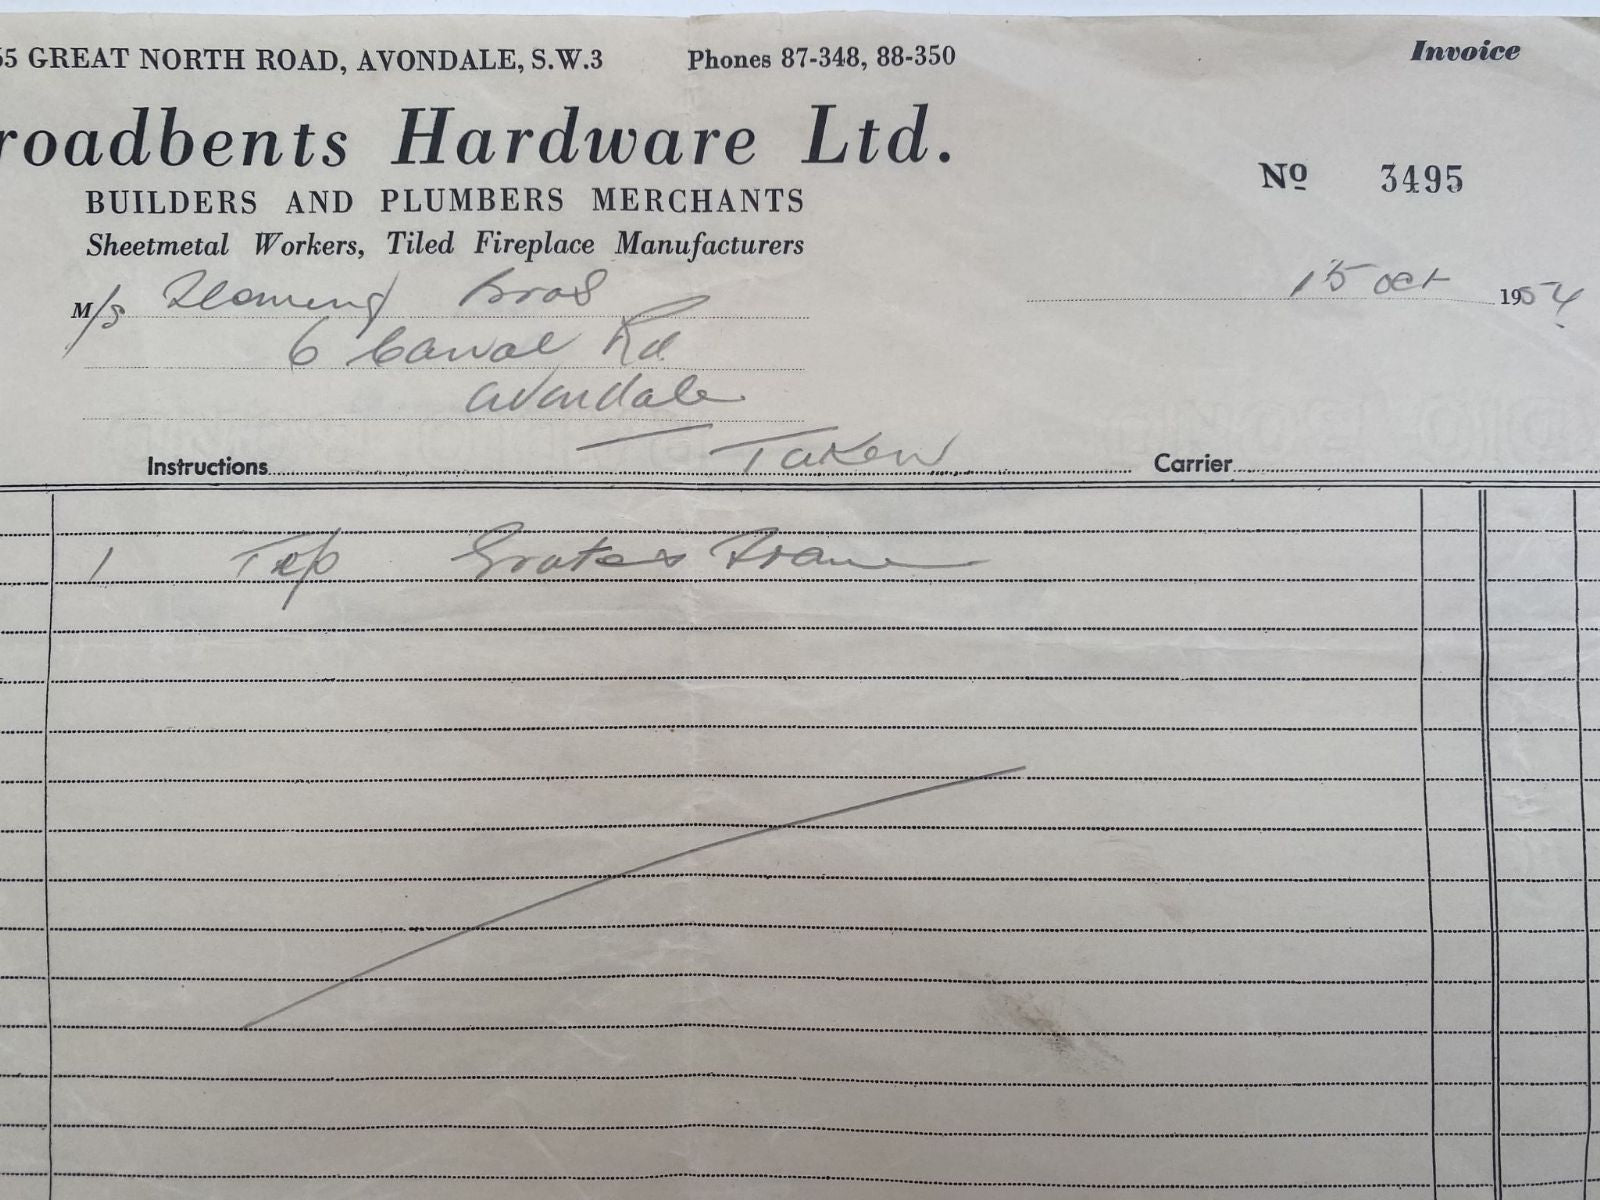 55 GREAT NORTH ROAD, AVONDALE, S.W.3 Phones 87-348, 88-350 Invoice
roadbents Hardware Ltd.
BUILDERS AND PLUMBERS MERCHANTS
No 3495
Sheetmetal Workers, Tiled Fireplace Manufacturers
15 Oct 1954
M/s Bros
6 Canal Rd
Avondale
Instructions Taken Carrier
1 Top Grate & Frame